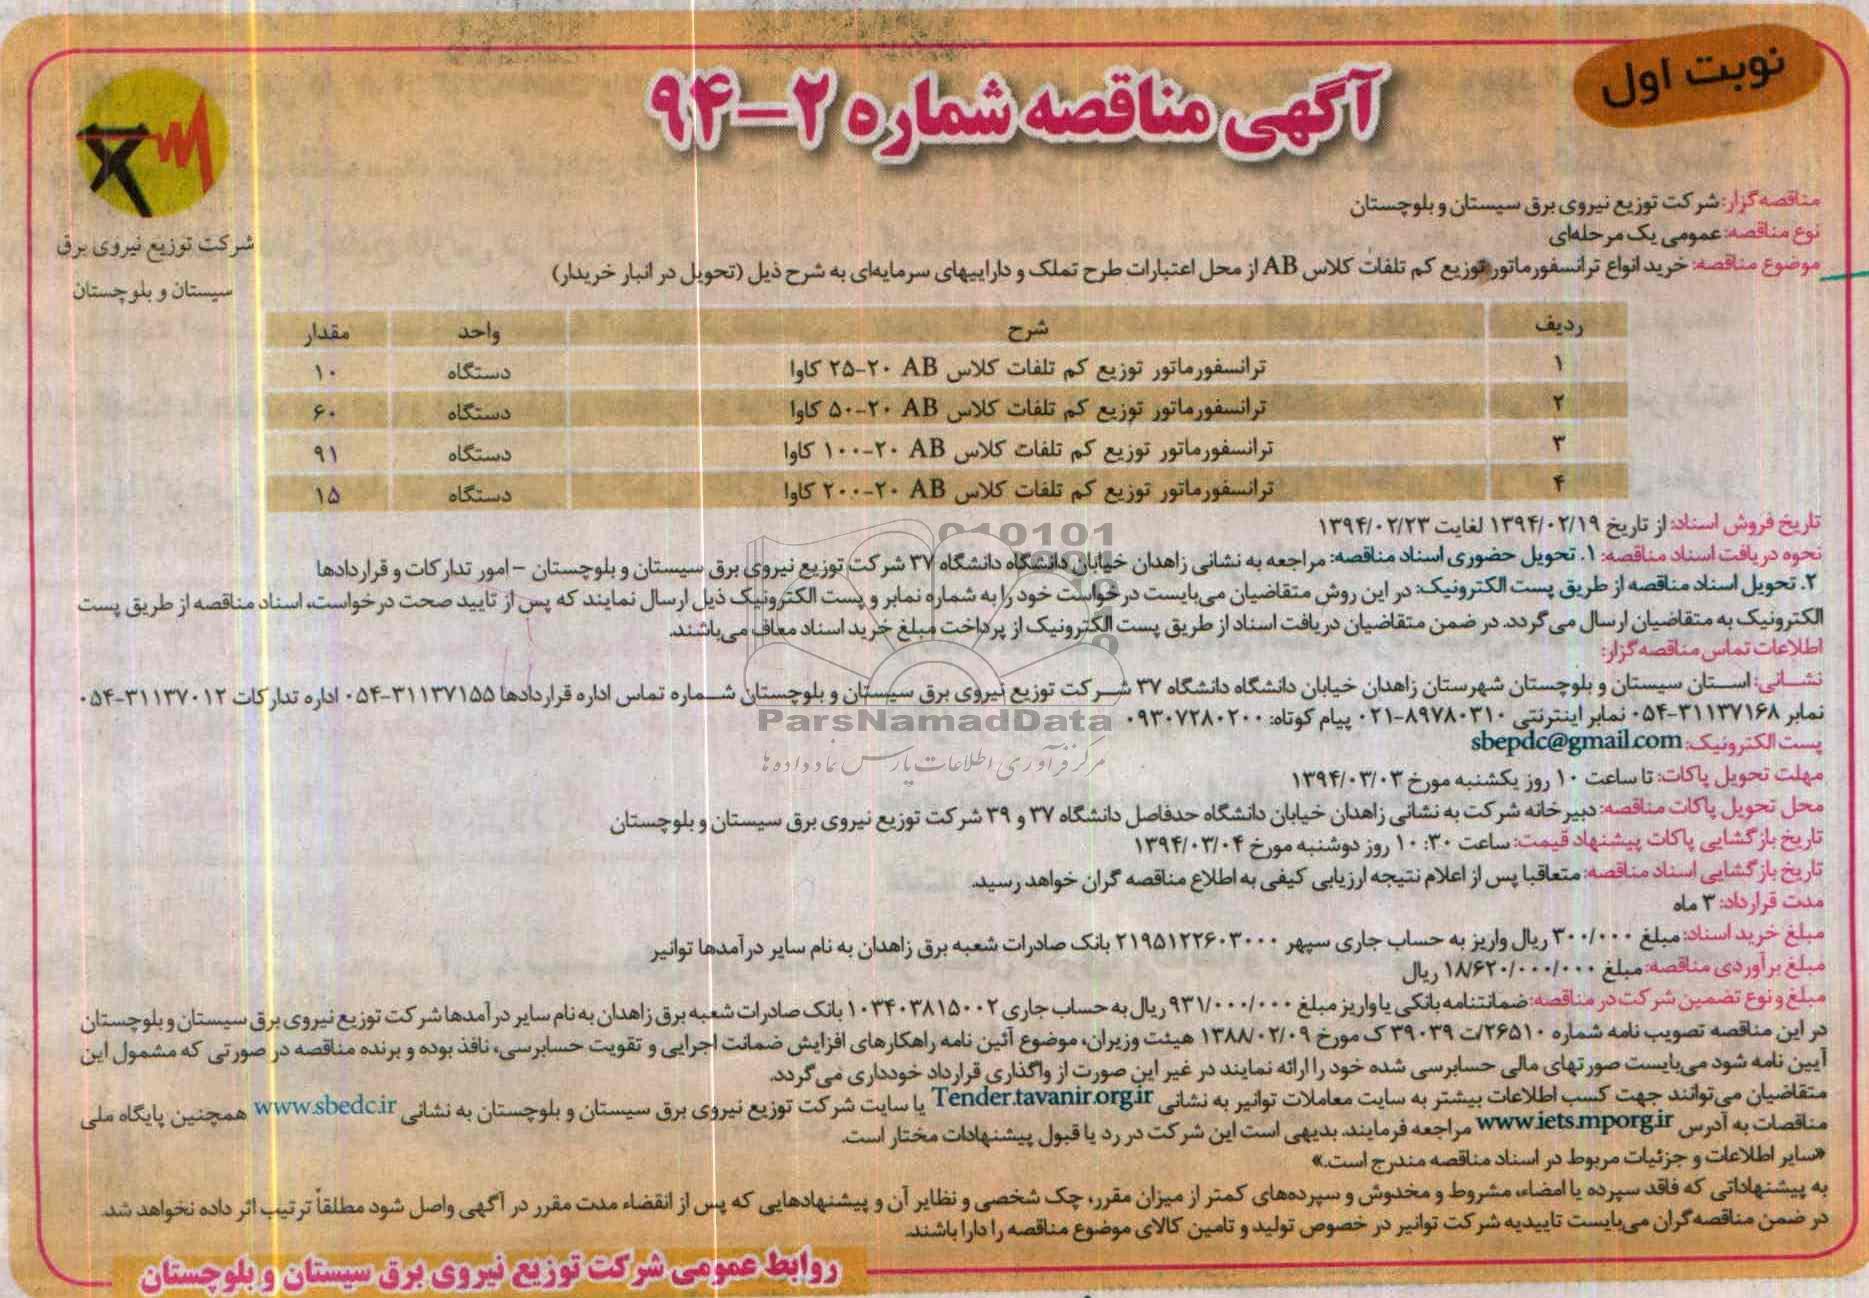 نوبت اول
آگهی مناقصه شماره ۲-۹۴
شرکت توزیع نیروی برق
سیستان و بلوچستان
مناقصه گزار: شرکت توزیع نیروی برق سیستان و بلوچستان
نوع مناقصه: عمومی یک مرحله‌ای
موضوع مناقصه: خرید انواع ترانسفورماتور توزیع کم تلفات کلاس AB از محل اعتبارات طرح تملک و داراییهای سرمایه‌ای به شرح ذیل (تحویل در انبار خریدار)
ردیف شرح واحد مقدار
۱ ترانسفورماتور توزیع کم تلفات کلاس AB ۲۰-۲۵ کاوا دستگاه ۱۰
۲ ترانسفورماتور توزیع کم تلفات کلاس AB ۲۰-۵۰ کاوا دستگاه ۶۰
۳ ترانسفورماتور توزیع کم تلفات کلاس AB ۲۰-۱۰۰ کاوا دستگاه ۹۱
۴ ترانسفورماتور توزیع کم تلفات کلاس AB ۲۰-۲۰۰ کاوا دستگاه ۱۵
تاریخ فروش اسناد: از تاریخ ۱۳۹۴/۰۲/۱۹ لغایت ۱۳۹۴/۰۲/۲۳
نحوه دریافت اسناد مناقصه: ۱. تحویل حضوری اسناد مناقصه: مراجعه به نشانی زاهدان خیابان دانشگاه دانشگاه ۳۷ شرکت توزیع نیروی برق سیستان و بلوچستان - امور تدارکات و قراردادها
۲. تحویل اسناد مناقصه از طریق پست الکترونیک: در این روش متقاضیان می‌بایست درخواست خود را به شماره نمابر و پست الکترونیک ذیل ارسال نمایند که پس از تایید صحت درخواست، اسناد مناقصه از طریق پست
الکترونیک به متقاضیان ارسال می گردد. در ضمن متقاضیان دریافت اسناد از طریق پست الکترونیک از پرداخت مبلغ خرید اسناد معاف می‌باشند.
اطلاعات تماس مناقصه گزار:
نشانی: استان سیستان و بلوچستان شهرستان زاهدان خیابان دانشگاه دانشگاه ۳۷ شرکت توزیع نیروی برق سیستان و بلوچستان شماره تماس اداره قراردادها ۳۱۱۳۷۱۵۵-۰۵۴ اداره تدارکات ۳۱۱۳۷۰۱۲-۰۵۴
نمابر ۳۱۱۳۷۱۶۸-۰۵۴ نمابر اینترنتی ۸۹۷۸۰۳۱۰-۰۲۱ پیام کوتاه: ۰۹۳۰۷۲۸۰۲۰۰
پست الکترونیک: sbepdc@gmail.com
ParsNamadData
مرکز فرآوری اطلاعات پارس نماد داده ها
مهلت تحویل پاکات: تا ساعت ۱۰ روز یکشنبه مورخ ۱۳۹۴/۰۳/۰۳
محل تحویل پاکات مناقصه: دبیرخانه شرکت به نشانی زاهدان خیابان دانشگاه حدفاصل دانشگاه ۳۷ و ۳۹ شرکت توزیع نیروی برق سیستان و بلوچستان
تاریخ بازگشایی پاکات پیشنهاد قیمت: ساعت ۱۰:۳۰ روز دوشنبه مورخ ۱۳۹۴/۰۳/۰۴
تاریخ بازگشایی اسناد مناقصه: متعاقبا پس از اعلام نتیجه ارزیابی کیفی به اطلاع مناقصه گران خواهد رسید.
مدت قرارداد: ۳ ماه
مبلغ خرید اسناد: مبلغ ۳۰۰/۰۰۰ ریال واریز به حساب جاری سپهر ۲۱۹۵۱۲۲۶۰۳۰۰۰ بانک صادرات شعبه برق زاهدان به نام سایر درآمدها توانیر
مبلغ برآوردی مناقصه: مبلغ ۱۸/۶۲۰/۰۰۰/۰۰۰ ریال
مبلغ و نوع تضمین شرکت در مناقصه: ضمانتنامه بانکی یا واریز مبلغ ۹۳۱/۰۰۰/۰۰۰ ریال به حساب جاری ۱۰۳۴۰۳۸۱۵۰۰۲ بانک صادرات شعبه برق زاهدان به نام سایر درآمدها شرکت توزیع نیروی برق سیستان و بلوچستان
در این مناقصه تصویب نامه شماره ۲۶۵۱۰/ت ۳۹۰۳۹ ک مورخ ۱۳۸۸/۰۲/۰۹ هیئت وزیران، موضوع آئین نامه راهکارهای افزایش ضمانت اجرایی و تقویت حسابرسی، نافذ بوده و برنده مناقصه در صورتی که مشمول این
آیین نامه شود می‌بایست صورتهای مالی حسابرسی شده خود را ارائه نمایند در غیر این صورت از واگذاری قرارداد خودداری می گردد.
متقاضیان می‌توانند جهت کسب اطلاعات بیشتر به سایت معاملات توانیر به نشانی Tender.tavanir.org.ir یا سایت شرکت توزیع نیروی برق سیستان و بلوچستان به نشانی www.sbedc.ir همچنین پایگاه ملی
مناقصات به آدرس www.iets.mporg.ir مراجعه فرمایند. بدیهی است این شرکت در رد یا قبول پیشنهادات مختار است.
«سایر اطلاعات و جزئیات مربوط در اسناد مناقصه مندرج است.»
به پیشنهاداتی که فاقد سپرده یا امضاء، مشروط و مخدوش و سپرده‌های کمتر از میزان مقرر، چک شخصی و نظایر آن و پیشنهادهایی که پس از انقضاء مدت مقرر در آگهی واصل شود مطلقاً ترتیب اثر داده نخواهد شد.
در ضمن مناقصه‌گران می‌بایست تاییدیه شرکت توانیر در خصوص تولید و تامین کالای موضوع مناقصه را دارا باشند.
روابط عمومی شرکت توزیع نیروی برق سیستان و بلوچستان